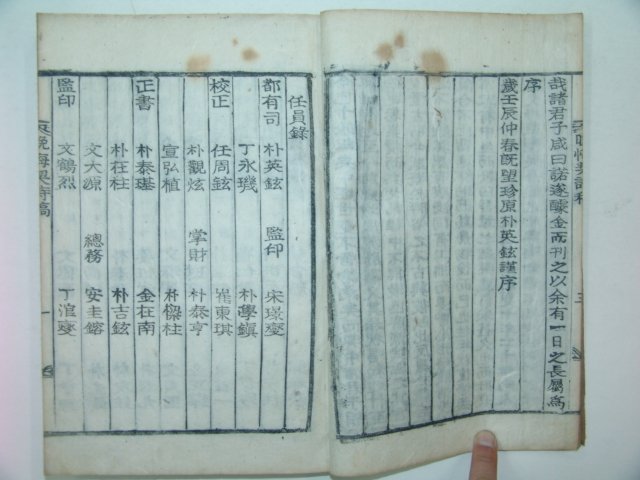 哉諸君子咸曰諾遂醵金而刊之以余有一日之長屬為
序
歲壬辰仲春旣望珍原朴英鉉謹序
任員錄
都有司 朴英鉉 監印 宋璟燮
丁永璣 朴學鎭
校正 任周鉉 崔東琪
朴觀炫 掌財 朴泰亨
宣弘植 朴樑柱
正書 朴泰堪 金在南
朴在柱 朴吉鉉
文大源 總務 安圭鎔
監印 文鶴烈 丁渲燮